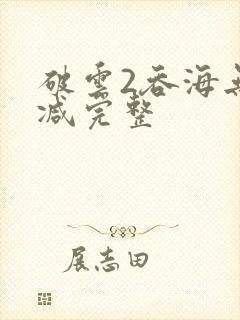 破雲2吞海無
减完整
展志田